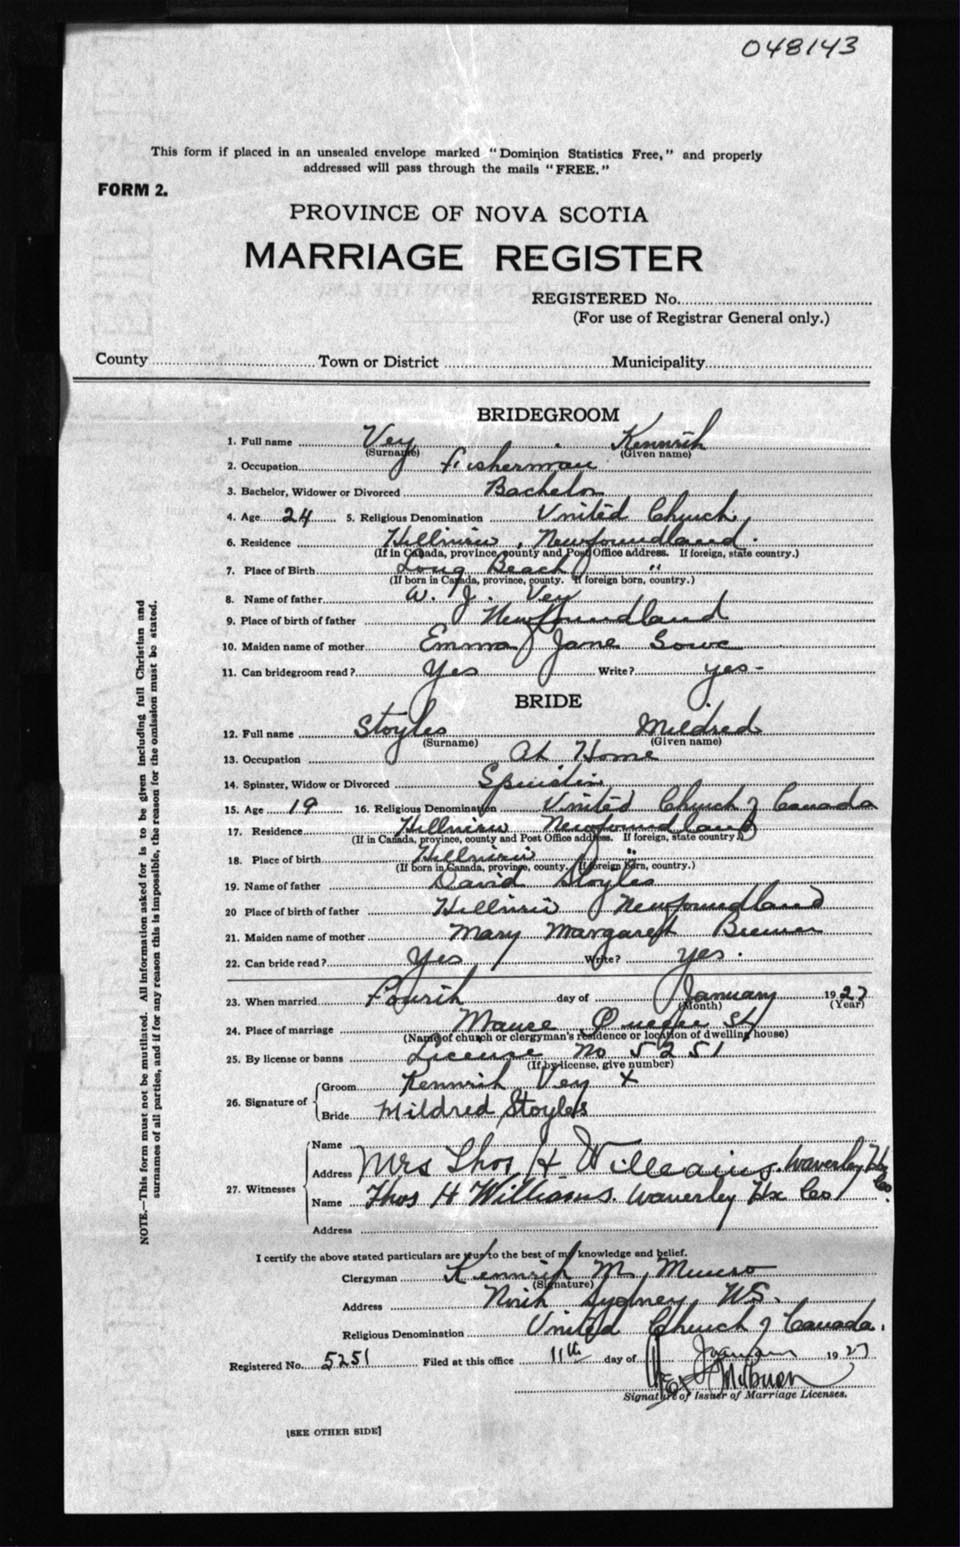 048143
This form if placed in an unsealed envelope marked "Dominion Statistics Free," and properly
addressed will pass through the mails "FREE."
FORM 2.
PROVINCE OF NOVA SCOTIA
MARRIAGE REGISTER
REGISTERED No.
(For use of Registrar General only.)
County Town or District Municipality
BRIDEGROOM
1. Full name Vey Kennrih
(Surname) (Given name)
2. Occupation Fisherman
3. Bachelor, Widower or Divorced Bachelor
4. Age 24 5. Religious Denomination United Church
6. Residence Hillview, Newfoundland.
(If in Canada, province, county and Post Office address. If foreign, state country.)
7. Place of Birth Long Beach "
(If born in Canada, province, county. If foreign born, country.)
8. Name of father W. J. Vey
9. Place of birth of father Newfoundland
10. Maiden name of mother Emma Jane
11. Can bridegroom read? Yes Write? yes-
BRIDE
12. Full name Stoyles Mildred
(Surname) (Given name)
13. Occupation At Home
14. Spinster, Widow or Divorced Spinster
15. Age 19 16. Religious Denomination United Church of Canada
17. Residence Hillview Newfoundland
(If in Canada, province, county and Post Office address. If foreign, state country.)
18. Place of birth Hillview "
(If born in Canada, province, county. If foreign born, country.)
19. Name of father David Stoyles
20 Place of birth of father Hillview Newfoundland
21. Maiden name of mother Mary Margaret
22. Can bride read? Yes Write? yes.
23. When married Fourth day of January 1927
(Month) (Year)
24. Place of marriage Manse St
(Name of church or clergyman's residence or location of dwelling house)
25. By license or banns License No 5251
(If by license, give number)
26. Signature of Groom Kennrih Vey X
Bride Mildred Stoyles
27. Witnesses
Name
Address Mrs Thos H Williams. Waverley Hx Co.
Name Thos H Williams. Waverley Hx Co
Address
I certify the above stated particulars are true to the best of my knowledge and belief.
Clergyman M. Munro
(Signature)
Address North Sydney N.S.
Religious Denomination United Church of Canada.
Registered No. 5251 Filed at this office 11th day of January 1927
Signature of Issuer of Marriage Licenses.
[SEE OTHER SIDE]
NOTE.—This form must not be mutilated. All information asked for is to be given including full Christian and
surnames of all parties, and if for any reason this is impossible, the reason for the omission must be stated.